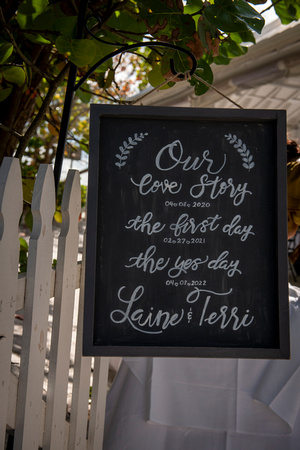 Our
love story
04○03○2020
the first day
02○27○2021
the yes day
04○03○2022
Laine & Terri